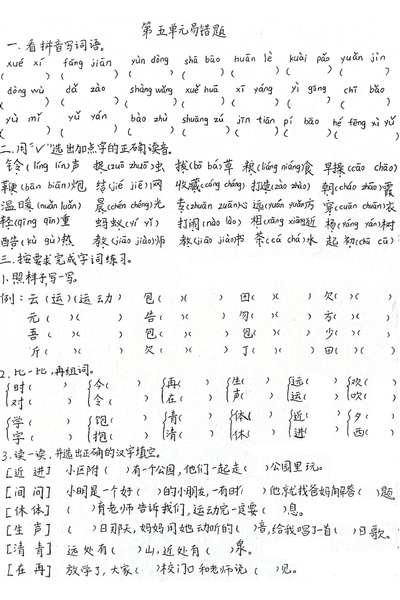 第五单元易错题
一、看拼音写词语。
xué xí fáng jiān yùn dòng shā bāo huān lè kuài pǎo yuǎn jìn
( ) ( ) ( ) ( ) ( ) ( ) ( )
dòng wù dǎ zào shàng wǎng xuě huā xī yáng yì gòng chī bǎo
( ) ( ) ( ) ( ) ( ) ( ) ( )
yù mǐ yǔ yán bào zhù shuāng zú jīn tiān pí bāo hé fēng xì yǔ
( ) ( ) ( ) ( ) ( ) ( ) ( )
二、用“√”选出加点字的正确读音。
铃(líng lín)声 捉(zuō zhuō)虫 拔(bō bá)草 粮(liáng niáng)食 早操(cāo chāo)
鞭(bān biān)炮 结(jié jiē)网 收藏(cáng cháng) 打造(zào zhào) 朝(cháo zhāo)霞
温暖(nuǎn luǎn) 晨(chén chéng)光 专(zhuān zuān)心 远(yuǎn yuǎn)方 穿(cuān chuān)衣
轻(qīng qīn)重 蚂蚁(yí yǐ) 打闹(nào lào) 相(xiāng xiàng)近 杨(yáng yán)树
酷(kù gù)热 教(jiāo jiào)师 教(jiāo jiào)书 茶(cá chá)水 起初(chū cū)
三、按要求完成字词练习。
1.照样子写一写。
例：云(运)(运动) 包( )( ) 田( )( ) 欠( )( )
元( )( ) 告( )( ) 勿( )( ) 方( )( )
吾( )( ) 包( )( ) 包( )( ) 少( )( )
斤( )( ) 欠( )( ) 丁( )( ) 田( )( )
2.比一比，再组词。
时( ) 令( ) 再( ) 生( ) 远( ) 欢( )
对( ) 今( ) 在( ) 声( ) 运( ) 吹( )
学( ) 饱( ) 青( ) 体( ) 近( ) 夕( )
字( ) 抱( ) 清( ) 休( ) 进( ) 西( )
3.读一读，并选出正确的汉字填空。
[近 进] 小区附( )有一个公园，他们一起走( )公园里玩。
[间 问] 小明是一个好( )的小朋友，一有时( )他就找爸妈问答( )题。
[休 体] ( )育老师告诉我们，运动完一定要( )息。
[生 声] ( )日那天，妈妈用她动听的( )音，给我唱了一首( )日歌。
[清 青] 远处有( )山，近处有( )泉。
[在 再] 放学了，大家( )校门口和老师说( )见。